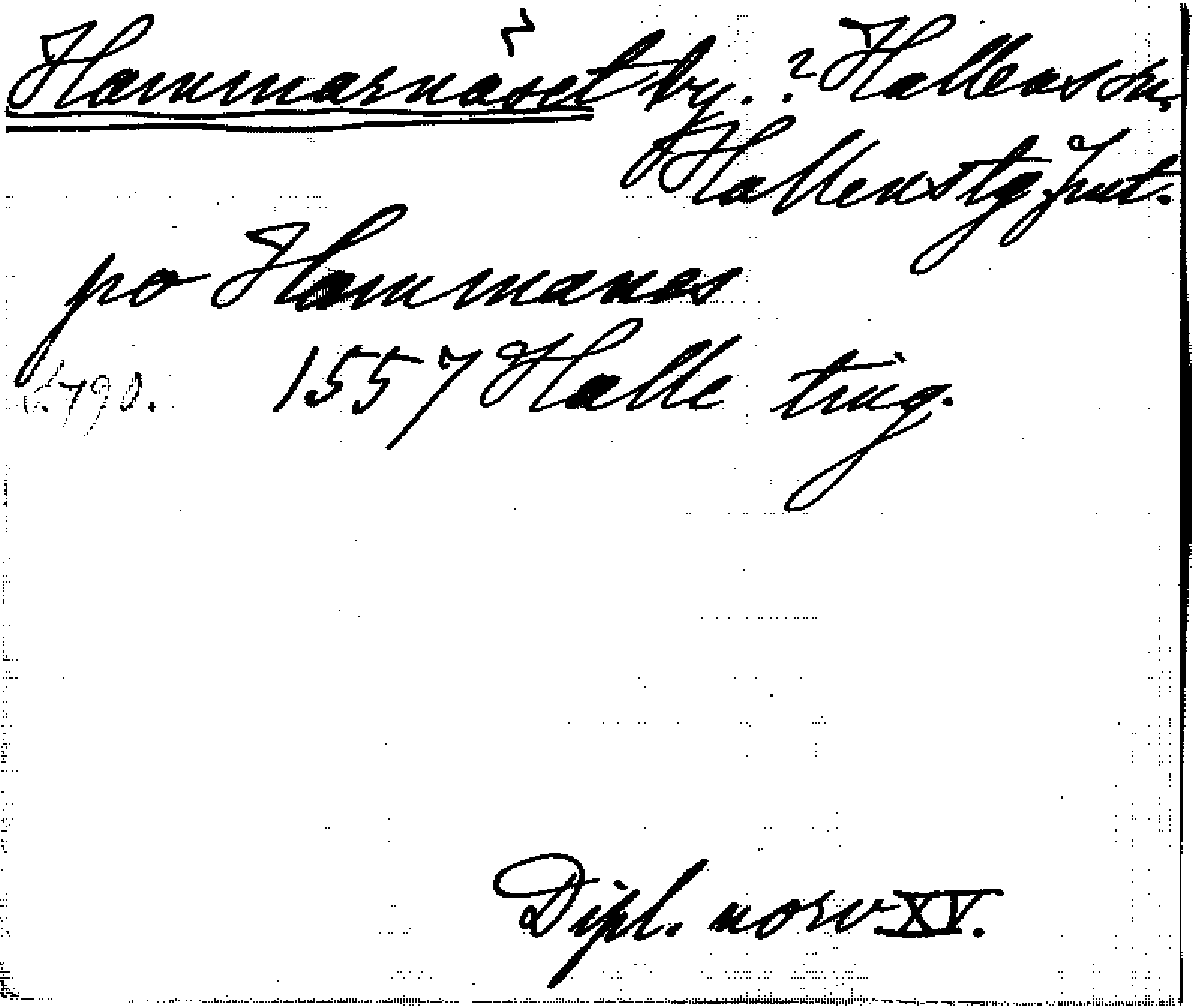 Hammarnäset by. ? Hallens sn,
Hallens tg Jmt.
po Hammanes
s. 790. 1557 Halle ting.
Dipl. norv. XV.